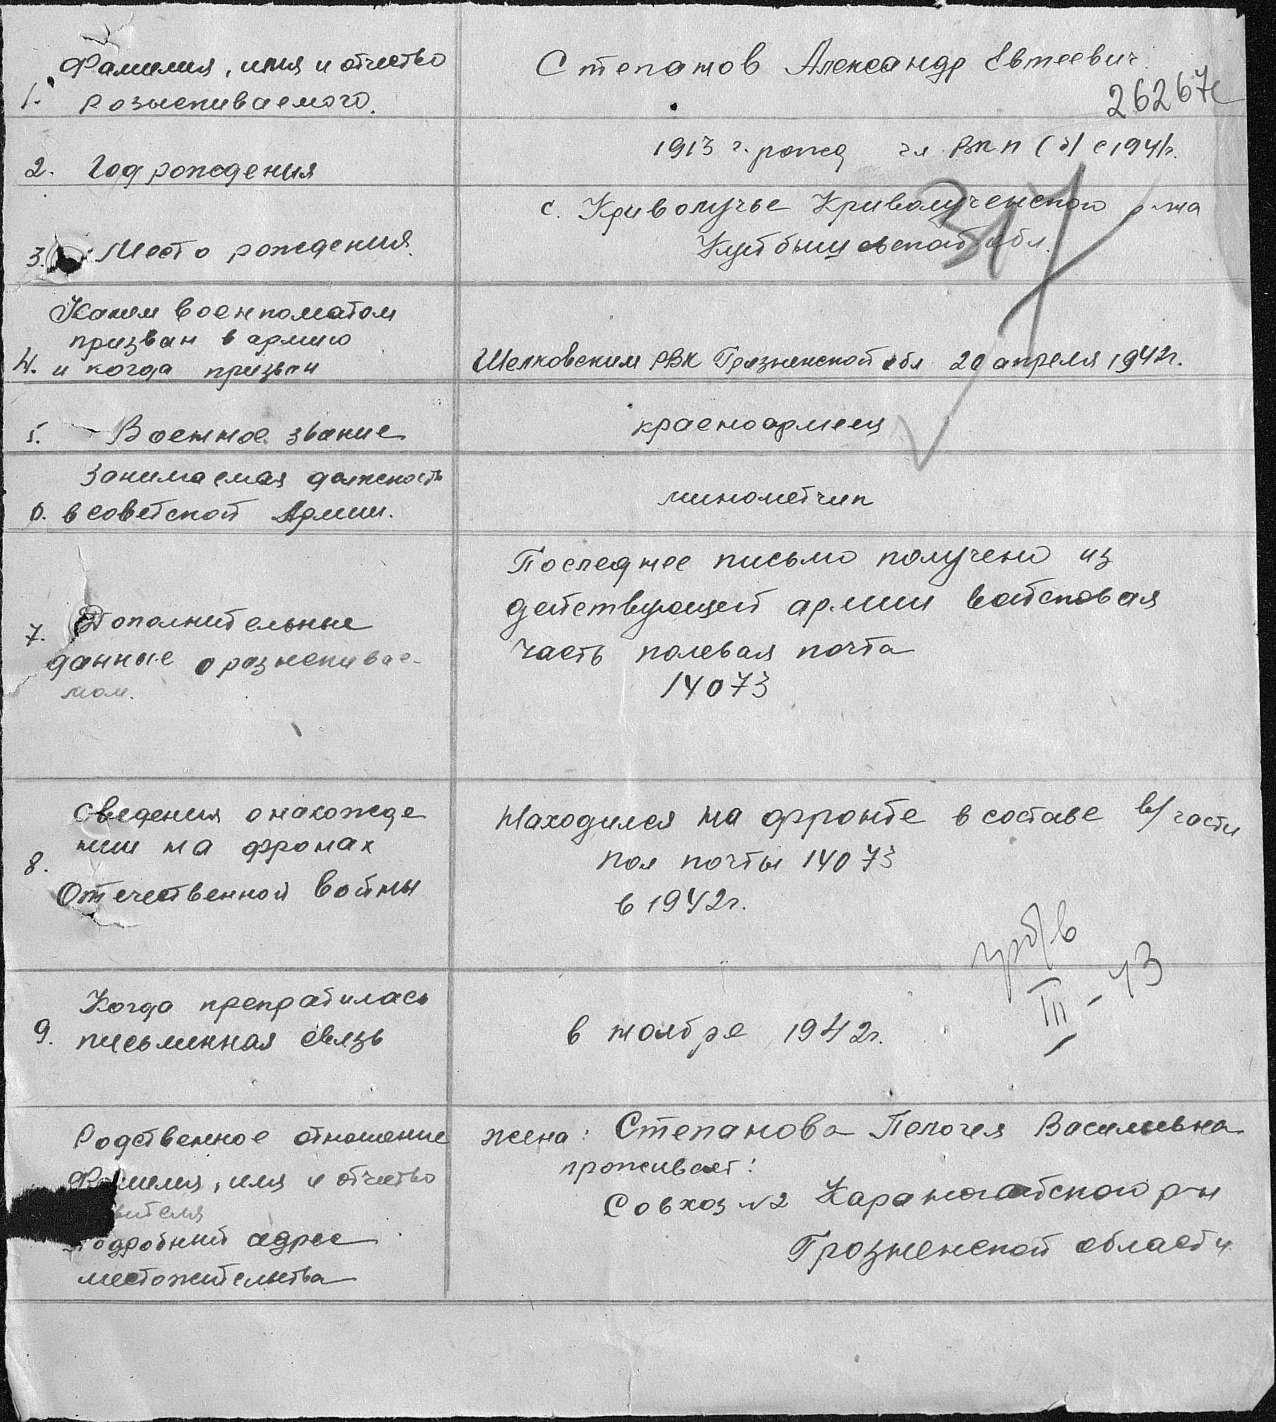 1. Фамилия, имя и отчество
розыскиваемого.
Степанов Александр Евтеевич.
26267с
2. Год рождения
1913 г. рожд чл ВКП(б) с 1941г.
3. Место рождения.
с. Криволучье Криволученского р-на
Куйбышевской обл.
317
Каким военкоматом
призван в армию
4. и когда призван
Шелковским РВК Грозненской обл 20 апреля 1942г.
5. Военное звание
красноармеец
занимаемая должность
6. в советской Армии.
минометчик
7. Дополнительные
данные о розыскивае-
мом.
Последнее письмо получено из
действующей армии войсковая
часть полевая почта
14073
8. сведения о нахожде
нии на фронах
Отечественной войны
Находился на фронте в составе в/части
пол почты 14073
в 1942г.
III-43
9. Когда прекратилась
письменная связь
в ноябре 1942г.
Родственное отношение
Фамилия, имя и отчество
вителя
Подробный адрес
местожительства
жена: Степанова Пелогея Васильевна
проживает:
Совхоз №2 Караногайского р-н
Грозненской области